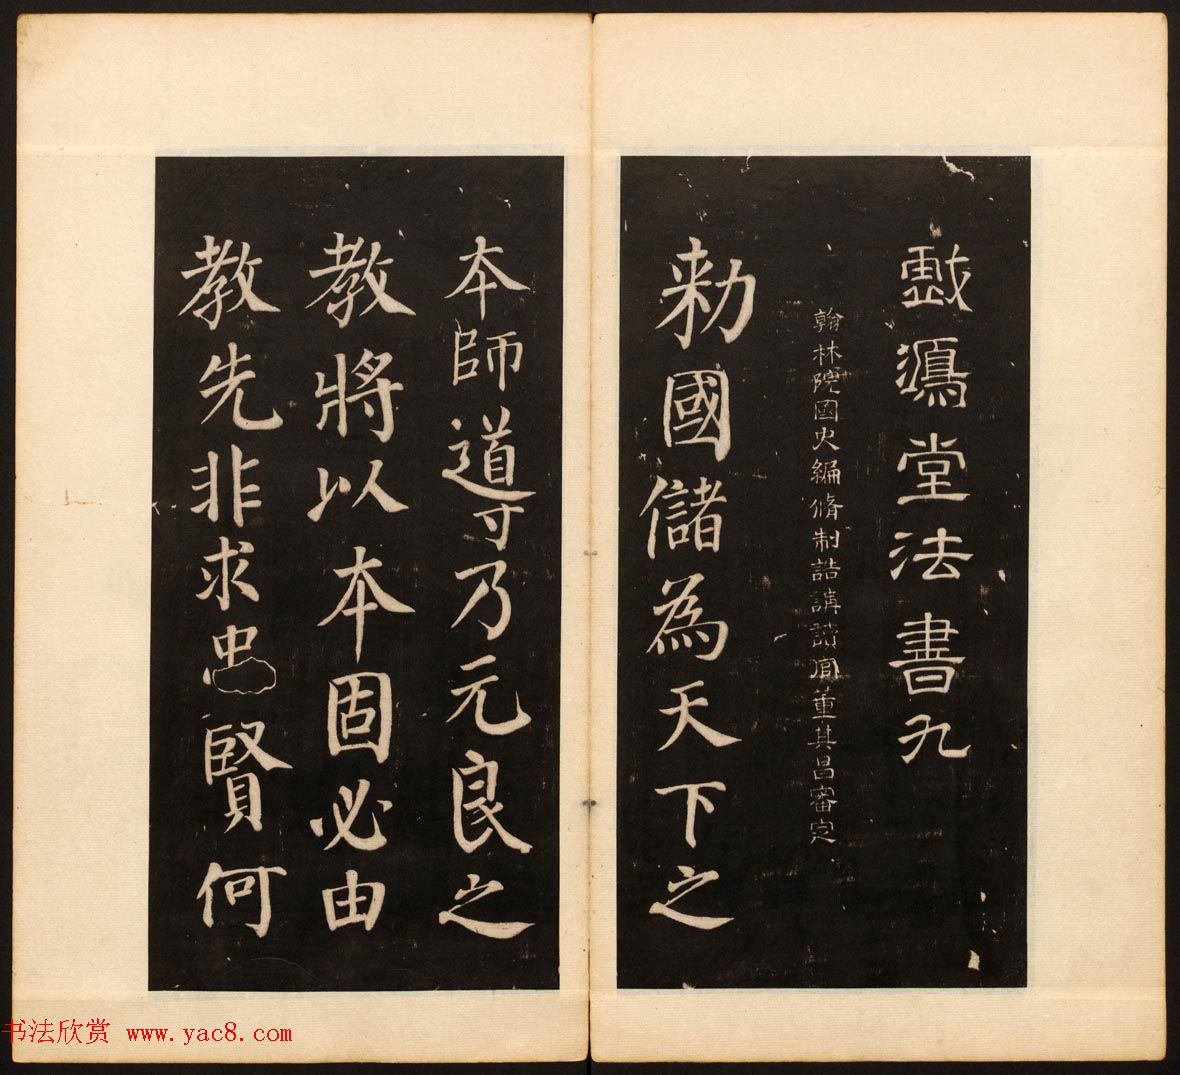 戲鴻堂法書九
翰林院國史編脩制誥講讀官董其昌審定
勑國儲為天下之
本師導乃元良之
教將以本固必由
教先非求忠賢何
书法欣赏 www.yac8.com